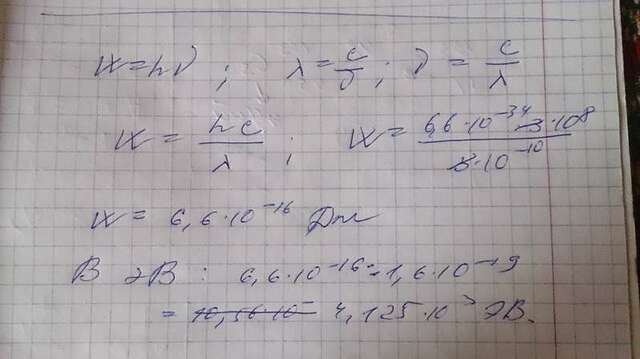 W = hν ; λ = c/ν ; ν = c/λ
W = hc/λ ; W = 6,6·10⁻³⁴·3·10⁸/3·10⁻¹⁰
W = 6,6·10⁻¹⁶ Дж
В эВ : 6,6·10⁻¹⁶ : 1,6·10⁻¹⁹
= 10,56·10⁻ 4,125·10³ эВ.